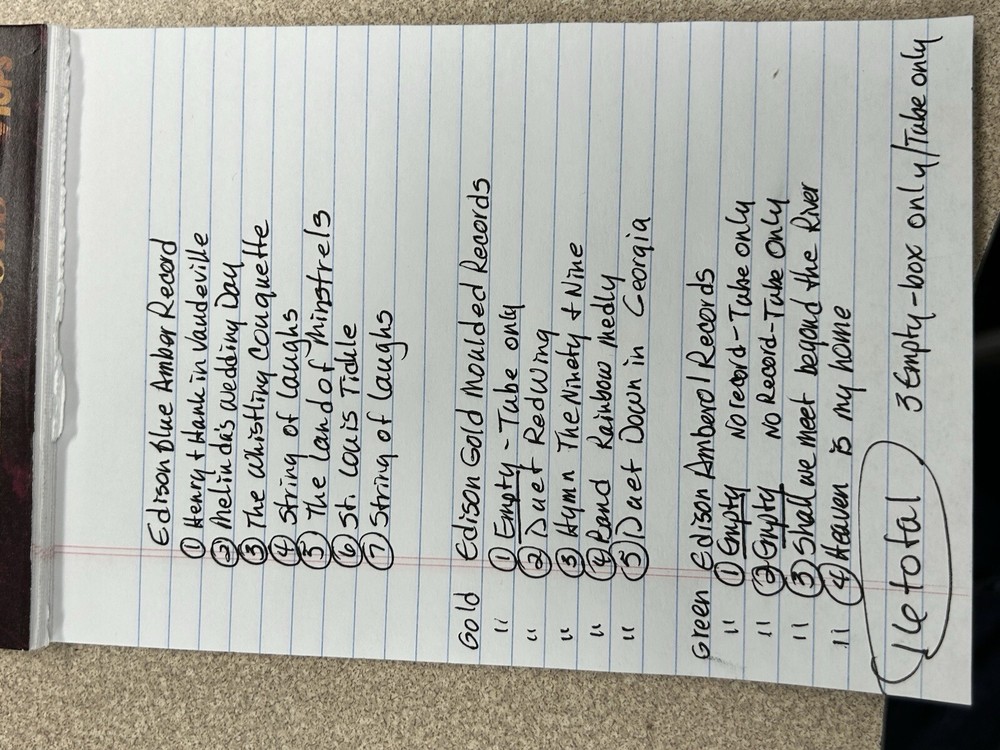 Edison Blue Amber Record
① Henry + Hank in Vaudeville
② Melinda's wedding Day
③ The Whistling Couquette
④ String of Laughs
⑤ The Land of Minstrels
⑥ St. Louis Tickle
⑦ String of Laughs
Gold Edison Gold Moulded Records
" ① Empty - Tube only
" ② Duet Red Wing
" ③ Hymn The Ninety + Nine
" ④ Band Rainbow Medly
" ⑤ Duet Down in Georgia
Green Edison Amberol Records
" ① Empty No record - Tube only
" ② Empty no Record - Tube Only
" ③ Shall we meet beyond the River
" ④ Heaven is my home
16 total 3 Empty - box only/Tube only